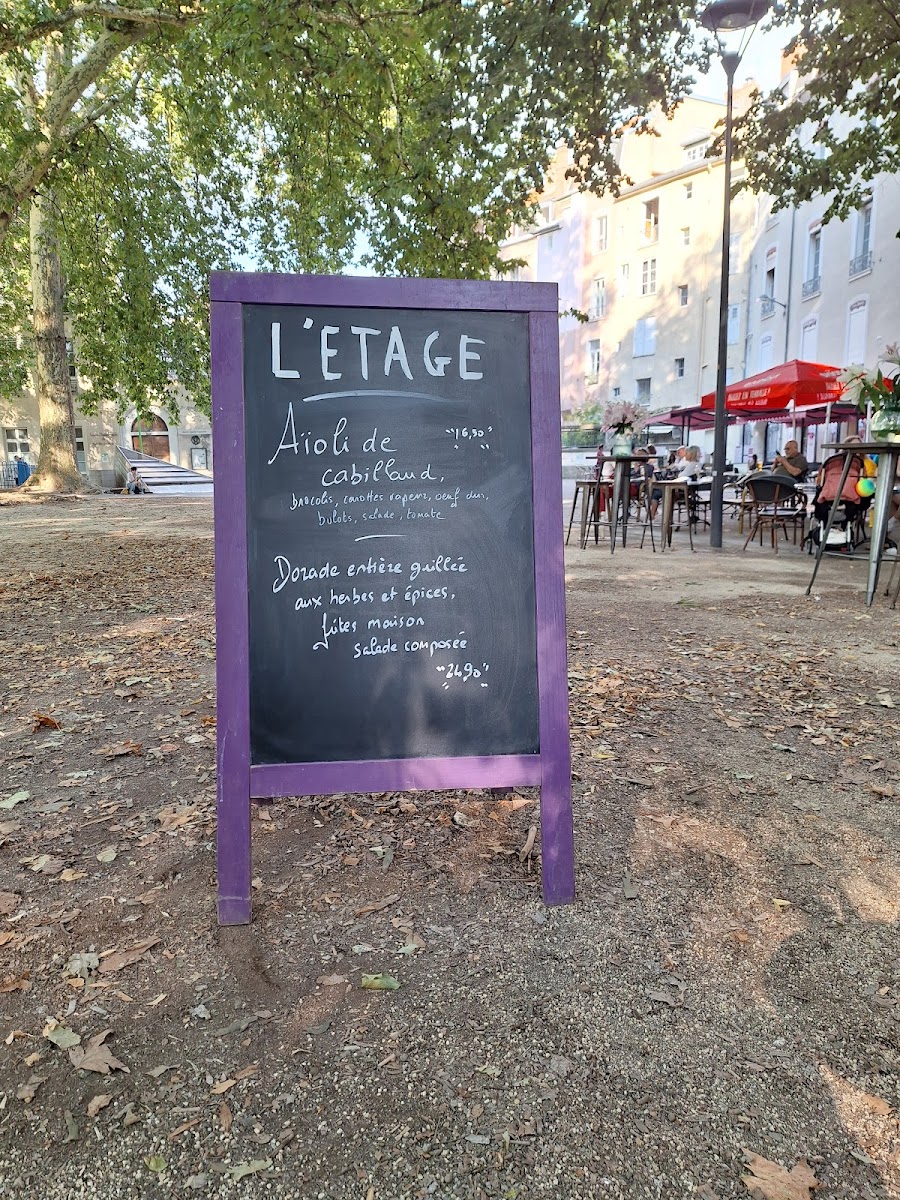 L'ETAGE
Aïoli de "16,50"
cabillaud,
brocolis, carottes vapeur, oeuf dur,
bulots, salade, tomate
Dorade entière grillée
aux herbes et épices,
frites maison
salade composée
"24,90"